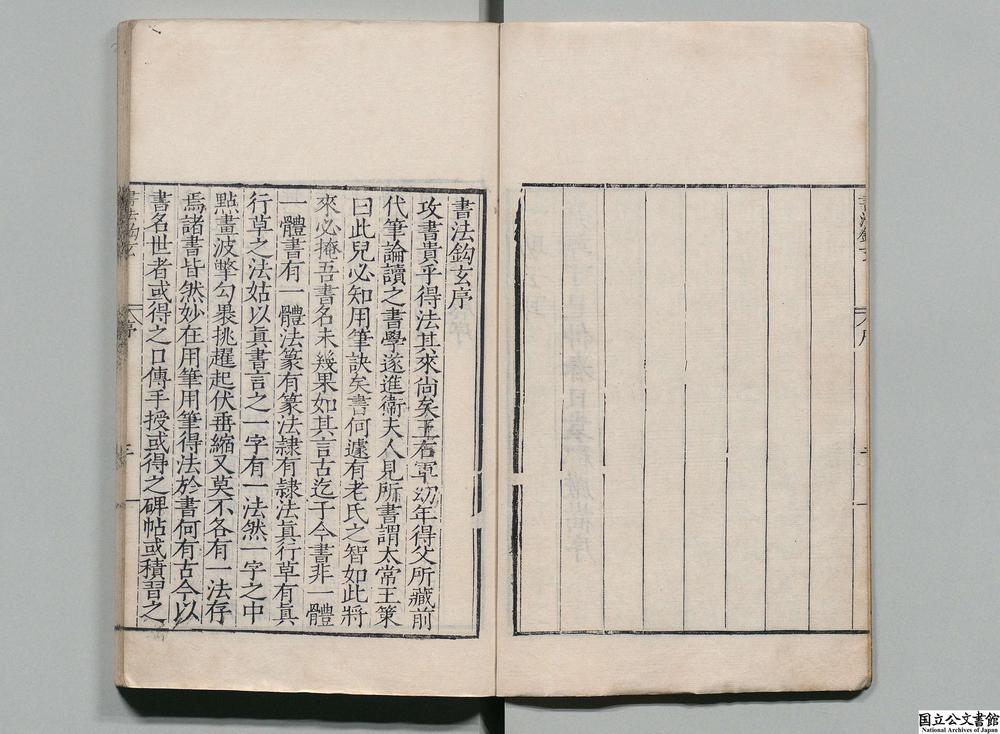 書法鈎玄序
攻書貴乎得法其來尚矣王右軍幼年得父所藏前
代筆論讀之書學遂進衛夫人見所書謂太常王策
曰此兒必知用筆訣矣書何遽有老氏之智如此將
來必掩吾書名未幾果如其言古迄于今書非一體
一體書有一體法篆有篆法隷有隷法真行草有真
行草之法姑以真書言之一字有一法然一字之中
點畫波撆勾褁挑趯起伏垂縮又莫不各有一法存
焉諸書皆然妙在用筆用筆得法於書何有古今以
書名世者或得之口傳手授或得之碑帖或積習之
序
国立公文書館
National Archives of Japan